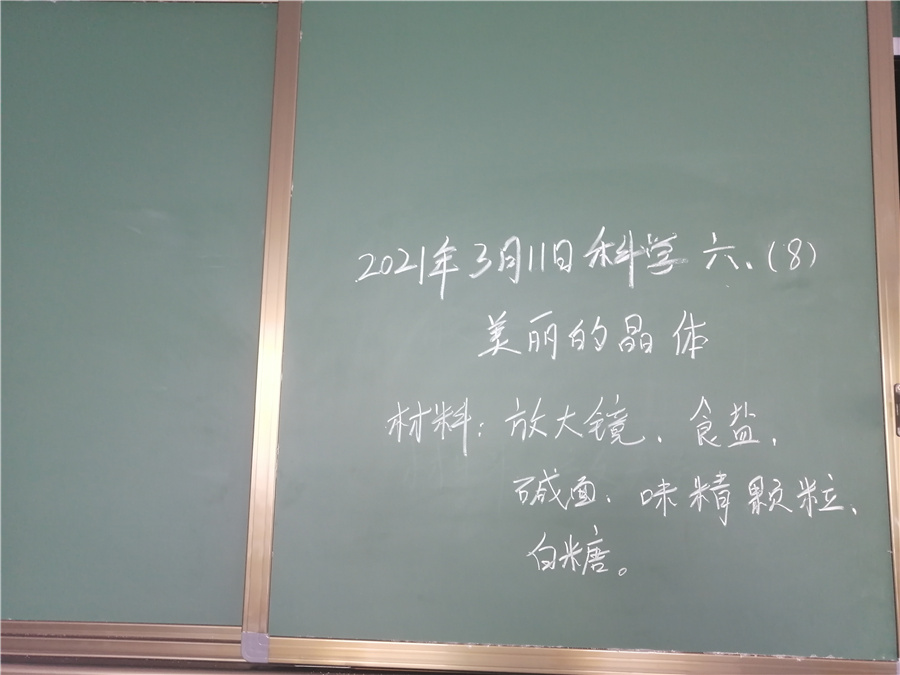 2021年3月11日科学 六、(8)
美丽的晶体
材料:放大镜、食盐、
碱面、味精颗粒、
白糖。